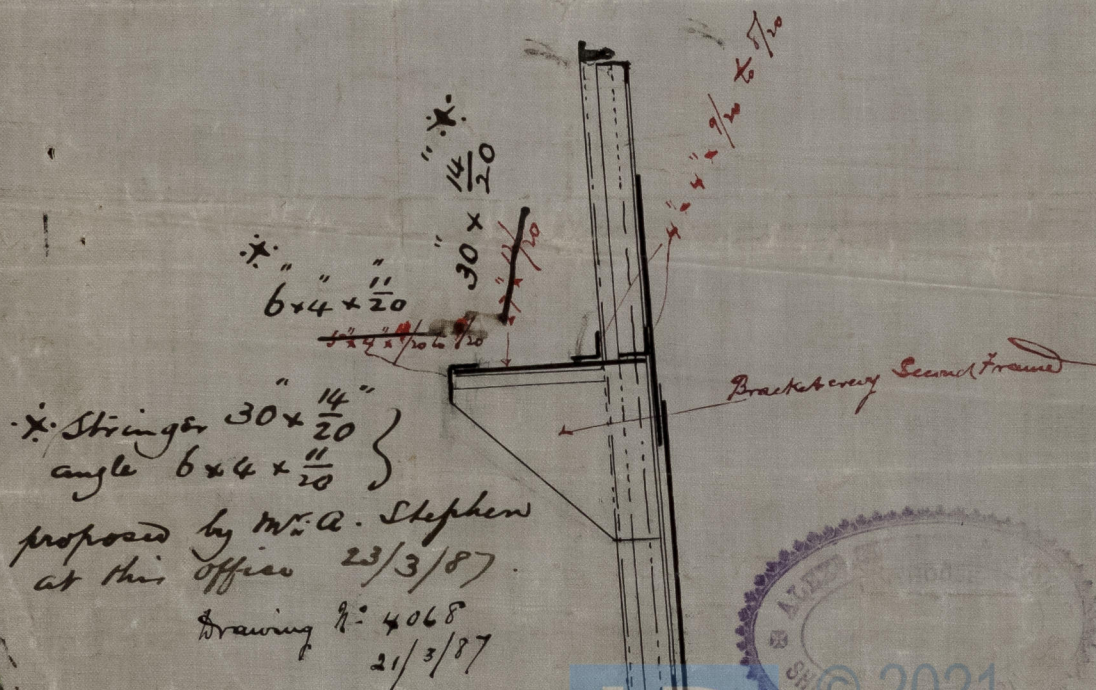 4" x 4" x 9/20 to 8/20
30" x 14/20"
6" x 4" x 11"/20
Bracket every Second Frame
·X· Stringer 30" x 14"/20
angle 6 x 4 x 11"/20
proposed by Mr. A. Stephen
at this office 23/3/87.
Drawing No. 4068
21/3/87
© 2021